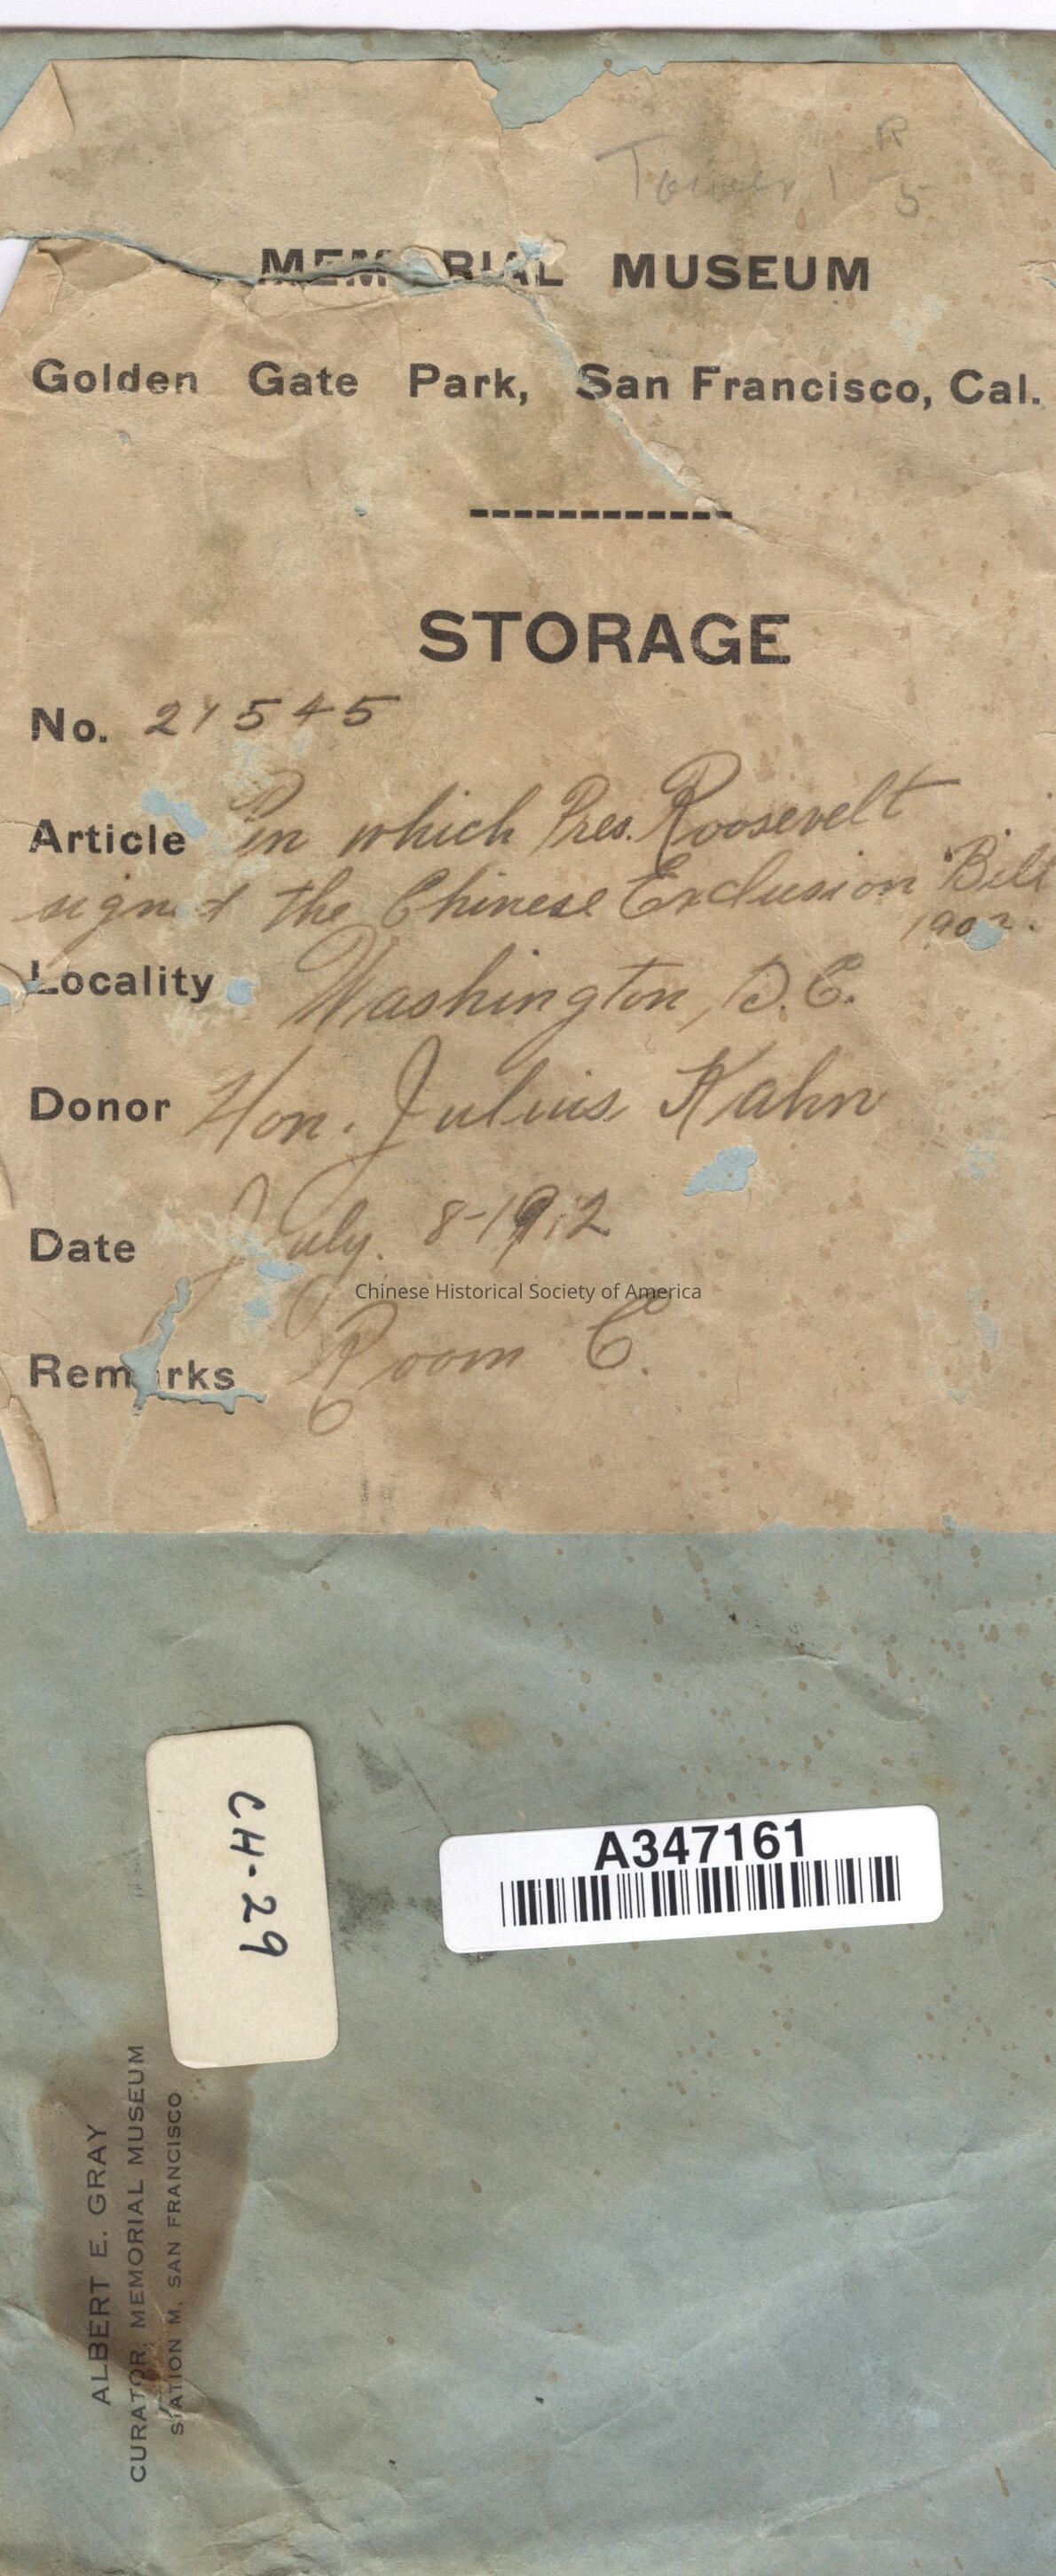 Tower 1 R
5
MEMORIAL MUSEUM
Golden Gate Park, San Francisco, Cal.
STORAGE
No. 21545
Article Pen which Pres. Roosevelt
signed the Chinese Exclusion Bill
1902.
Locality Washington, D.C.
Donor Hon. Julius Kahn
Date July. 8-1912
Chinese Historical Society of America
Remarks Room C.
CH-29
A347161
ALBERT E. GRAY
CURATOR, MEMORIAL MUSEUM
STATION M, SAN FRANCISCO